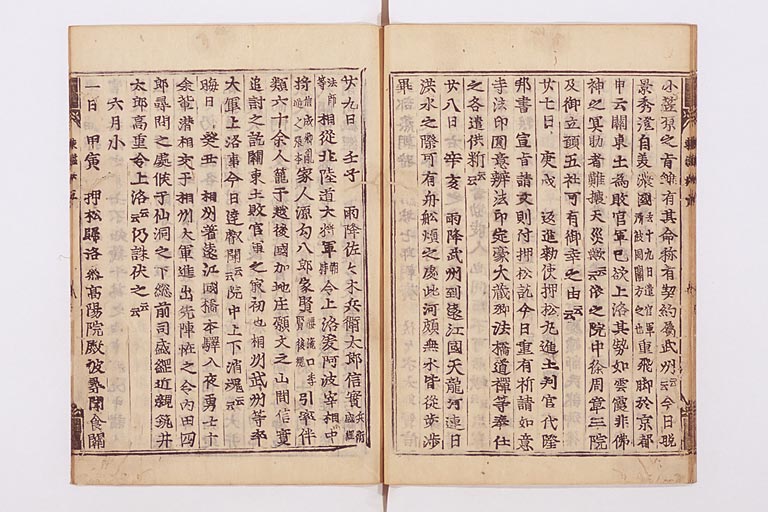 小笠原之旨雖有其命称有契約属武州云云今日晩
景秀澄自美濃國去十九日遣官軍所被固関方之也重飛脚於京都
申云關東士為敗官軍已欲上洛其勢如雲霞非佛
神之冥助者難攘天災歟云云依之院中徐周章三院
及御立願五社可有御幸之由云云
廿七日 庚戌 送進勅使押松九進士判官代隆
邦書宣旨請文則付押松訖今日重有祈請如意
寺法印圓意辨法印定豪大蔵卿法橋道禅等奉仕
之各遣供新云云
廿八日 辛亥 雨降武州到遠江國天龍河連日
洪水之際可有舟舩煩之處此河頗無水皆從歩渉
畢
廿九日 壬子 雨降佐々木兵衛太郎信實兵衛盛綱
法師等相從北陸道大將軍朝時令上洛爰阿波宰相中
將信成乱逆之張本家人源勾八郎家賢腰瀧口季賢後胤引率伴
類六十余人籠于越後國加地庄願文之山間信實
追討之訖關東士敗官軍之最初也相州武州等率
大軍上洛事今日達叡聞云云院中上下消魂云云
晦日 癸丑 相州著遠江國橋本驛入夜勇士十
余輩潜相交于相州大軍進出先陣恠之令内田四
郎尋問之處候于仙洞之下総前司盛綱近親筑井
太郎高重令上洛云云仍誅伏之云云
六月小
一日 甲寅 押松歸洛參高陽院殿彼與聞食關